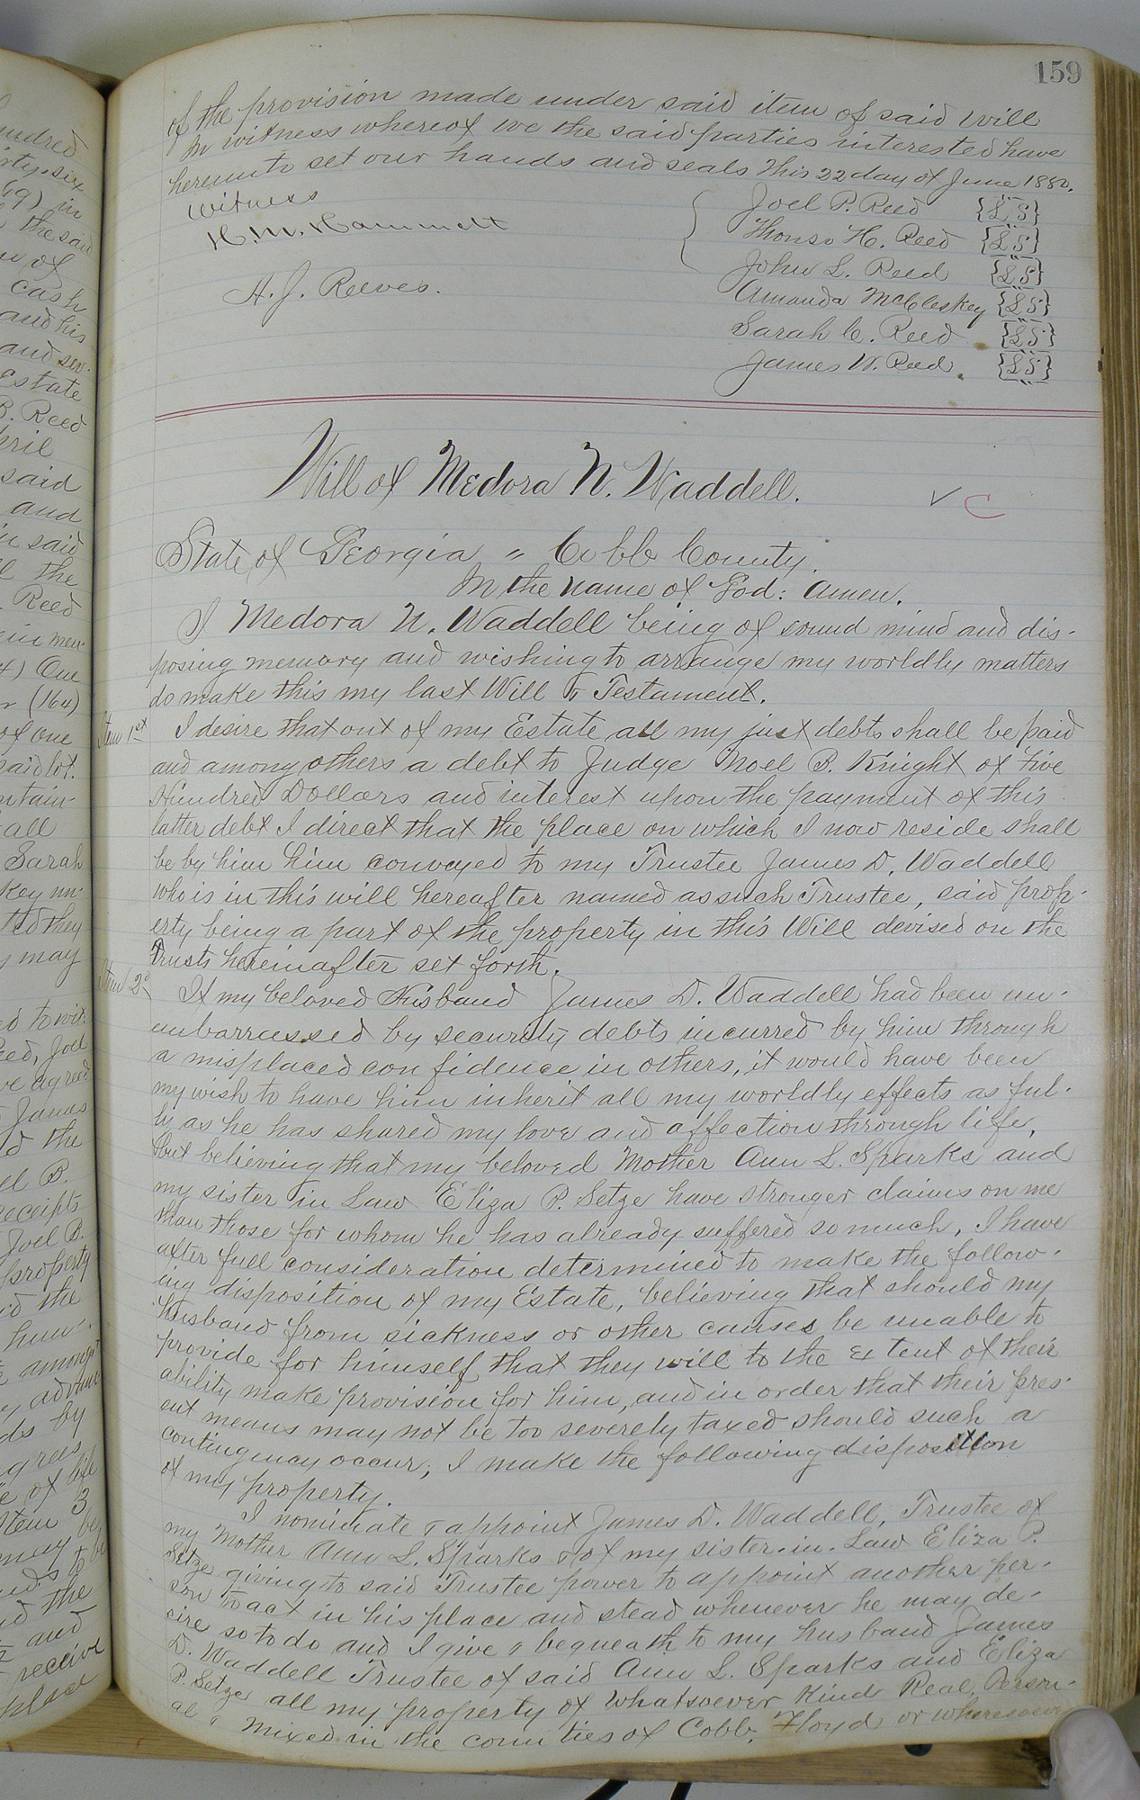 159
of the provision made under said item of said will
In witness whereof we the said parties interested have
hereunto set our hands and seals this 22 day of June 1880.
Witness
H. M. Hammett
A. J. Reeves.
Joel P. Reed {L S}
Thonso H. Reed {L S}
John L. Reed {L S}
Amanda McCleskey {L S}
Sarah C. Reed {L S}
James W. Reed. {L S}
Will of Medora N. Waddell.
✓ C
State of Georgia " Cobb County.
In the name of God: Amen.
I Medora N. Waddell being of sound mind and dis-
posing memory and wishing to arrange my worldly matters
do make this my last Will & Testament.
Item 1st I desire that out of my Estate all my just debts shall be paid
and among others a debt to Judge Noel B. Knight of five
Hundred Dollars and interest upon the payment of this
latter debt I direct that the place on which I now reside shall
be by him him conveyed to my Trustee James D. Waddell
who is in this will hereafter named as such Trustee, said prop-
erty being a part of the property in this Will devised on the
Trusts hereinafter set forth.
Item 2d If my beloved Husband James D. Waddell had been un-
unbarrassed by security debts incurred by him through
a misplaced confidence in others, it would have been
my wish to have him inherit all my worldly effects as ful-
ly as he has shared my love and affection through life,
but believing that my beloved Mother Ann L. Sparks and
my sister in Law Eliza P. Setze have stronger claims on me
than those for whom he has already suffered so much, I have
after full consideration determined to make the follow-
ing disposition of my Estate, believing that should my
Husband from sickness or other causes be unable to
provide for himself that they will to the extent of their
ability make provision for him, and in order that their pres-
ent means may not be too severely taxed should such a
contingency occur, I make the following disposition
of my property.
I nominate & appoint James D. Waddell, Trustee of
my Mother Ann L. Sparks & of my sister-in-Law Eliza P.
Setze giving to said Trustee power to appoint another per-
son to act in his place and stead whenever he may de-
sire so to do and I give & bequeath to my husband James
D. Waddell Trustee of said Ann L. Sparks and Eliza
P. Setze all my property of whatsoever kind Real, Person-
al & mixed in the counties of Cobb, Floyd or wheresoever